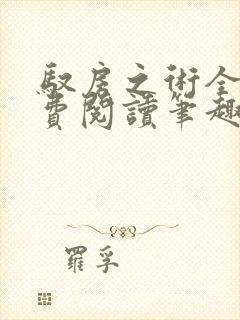 馭房之術全
費閱讀筆趣
羅孚